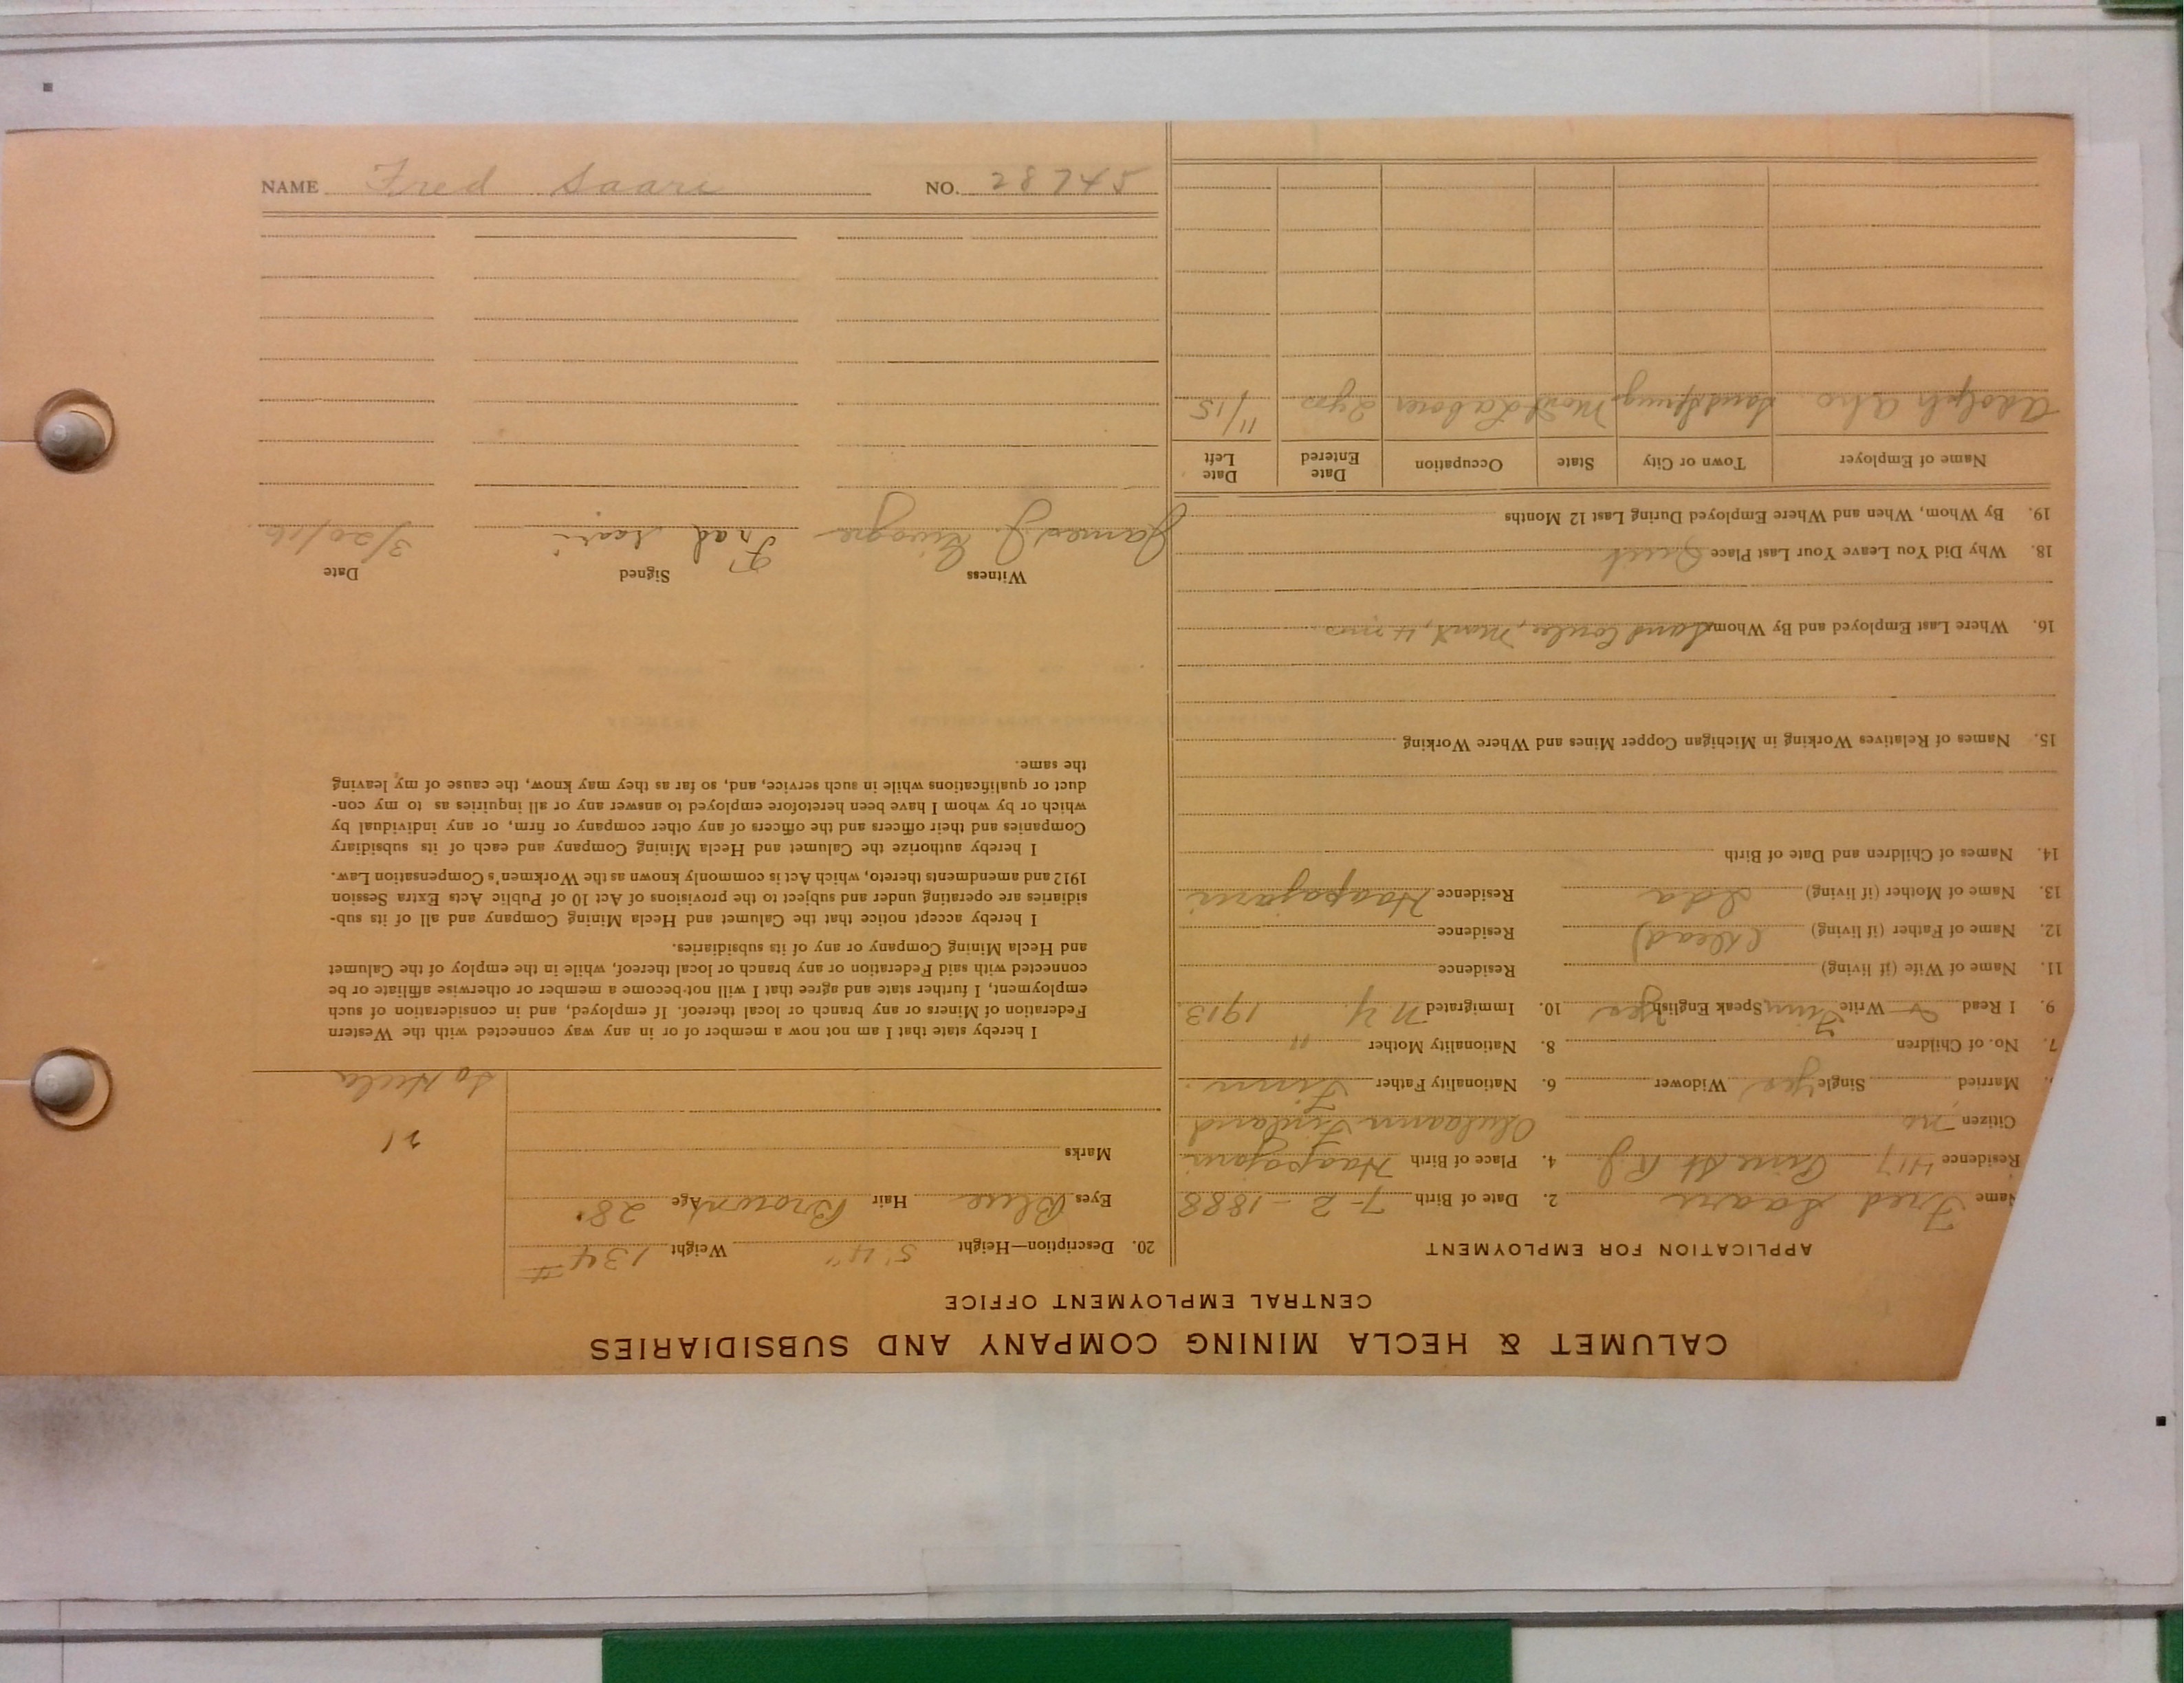 CALUMET & HECLA MINING COMPANY AND SUBSIDIARIES
CENTRAL EMPLOYMENT OFFICE
APPLICATION FOR EMPLOYMENT
Name Fred Saari 2. Date of Birth 7-2-1888
Residence 417 Pine St R.J. 4. Place of Birth Haapajarvi
Citizen no Finland
Married Single yes Widower 6. Nationality Father Finn
7. No. of Children 8. Nationality Mother "
9. I Read & Write Finn Speak English yes 10. Immigrated N.Y. 1913
11. Name of Wife (if living) Residence
12. Name of Father (if living) (Dead) Residence
13. Name of Mother (if living) Ida Residence Haapajarvi
14. Names of Children and Date of Birth
15. Names of Relatives Working in Michigan Copper Mines and Where Working
16. Where Last Employed and By Whom Sand Coulee, Mont, 4 mos
18. Why Did You Leave Your Last Place Quit
19. By Whom, When and Where Employed During Last 12 Months
Name of Employer Town or City State Occupation Date Entered Date Left
Adolph Aho Mont Laborer 2 yrs 11/15
20. Description—Height 5'4" Weight 134#
Eyes Blue Hair Brown Age 28
Marks
21
So Hecla
I hereby state that I am not now a member of or in any way connected with the Western
Federation of Miners or any branch or local thereof. If employed, and in consideration of such
employment, I further state and agree that I will not become a member or otherwise affiliate or be
connected with said Federation or any branch or local thereof, while in the employ of the Calumet
and Hecla Mining Company or any of its subsidiaries.
I hereby accept notice that the Calumet and Hecla Mining Company and all of its sub-
sidiaries are operating under and subject to the provisions of Act 10 of Public Acts Extra Session
1912 and amendments thereto, which Act is commonly known as the Workmen's Compensation Law.
I hereby authorize the Calumet and Hecla Mining Company and each of its subsidiary
Companies and their officers and the officers of any other company or firm, or any individual by
which or by whom I have been heretofore employed to answer any or all inquiries as to my con-
duct or qualifications while in such service, and, so far as they may know, the cause of my leaving
the same.
Witness Signed Date
James J. Frad Saari 3/20/16
NAME Fred Saari NO. 28745